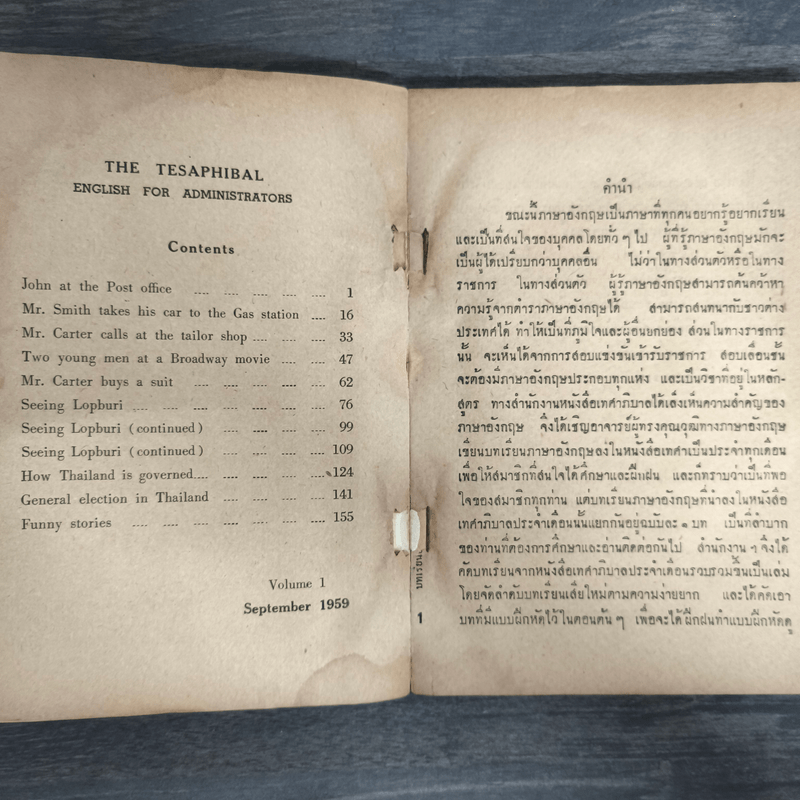 THE TESAPHIBAL
ENGLISH FOR ADMINISTRATORS
Contents
John at the Post office .... .... .... .... .... 1
Mr. Smith takes his car to the Gas station .... 16
Mr. Carter calls at the tailor shop .... .... .... 33
Two young men at a Broadway movie .... .... 47
Mr. Carter buys a suit .... .... .... .... .... 62
Seeing Lopburi .... .... .... .... .... .... 76
Seeing Lopburi (continued) .... .... .... .... 99
Seeing Lopburi (continued) .... .... .... .... 109
How Thailand is governed.... .... .... .... 124
General election in Thailand .... .... .... .... 141
Funny stories .... .... .... .... .... .... 155
Volume 1
September 1959
บทเรียน
1
คำนำ
ขณะนี้ภาษาอังกฤษเป็นภาษาที่ทุกคนอยากรู้อยากเรียน
และเป็นที่สนใจของบุคคลโดยทั่ว ๆ ไป ผู้ที่รู้ภาษาอังกฤษมักจะ
เป็นผู้ได้เปรียบกว่าบุคคลอื่น ไม่ว่าในทางส่วนตัวหรือในทาง
ราชการ ในทางส่วนตัว ผู้รู้ภาษาอังกฤษสามารถค้นคว้าหา
ความรู้จากตำราภาษาอังกฤษได้ สามารถสนทนากับชาวต่าง
ประเทศได้ ทำให้เป็นที่ภูมิใจและผู้อื่นยกย่อง ส่วนในทางราชการ
นั้น จะเห็นได้จากการสอบแข่งขันเข้ารับราชการ สอบเลื่อนชั้น
จะต้องมีภาษาอังกฤษประกอบทุกแห่ง และเป็นวิชาที่อยู่ในหลัก-
สูตร ทางสำนักงานหนังสือเทศาภิบาลได้เล็งเห็นความสำคัญของ
ภาษาอังกฤษ จึงได้เชิญอาจารย์ผู้ทรงคุณวุฒิทางภาษาอังกฤษ
เขียนบทเรียนภาษาอังกฤษลงในหนังสือเทศาภิบาลเป็นประจำทุกเดือน
เพื่อให้สมาชิกที่สนใจได้ศึกษาและฝึกฝน และก็ทราบว่าเป็นที่พอ
ใจของสมาชิกทุกท่าน แต่บทเรียนภาษาอังกฤษที่นำลงในหนังสือ
เทศาภิบาลประจำเดือนนั้นแยกกันอยู่ฉบับละ ๑ บท เป็นที่ลำบาก
ของท่านที่ต้องการศึกษาและอ่านติดต่อกันไป สำนักงาน ฯ จึงได้
คัดบทเรียนจากหนังสือเทศาภิบาลประจำเดือนรวบรวมขึ้นเป็นเล่ม
โดยจัดลำดับบทเรียนเสียใหม่ตามความง่ายยาก และได้คัดเอา
บทที่มีแบบฝึกหัดไว้ในตอนต้น ๆ เพื่อจะได้ฝึกฝนทำแบบฝึกหัดดู